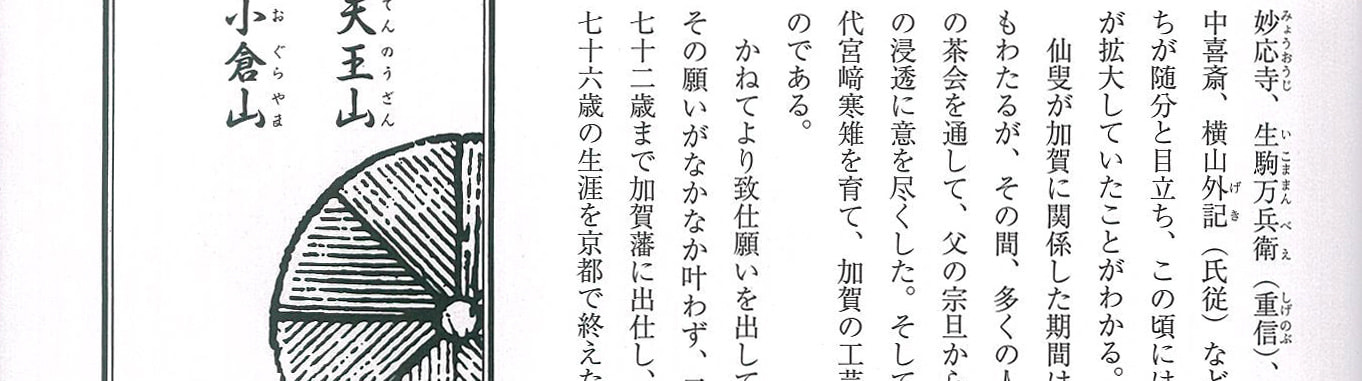 妙応寺、生駒万兵衛（重信）、
中喜斎、横山外記（氏従）など
ちが随分と目立ち、この頃には
が拡大していたことがわかる。
仙叟が加賀に関係した期間は
もわたるが、その間、多くの人
の茶会を通して、父の宗旦から
の浸透に意を尽くした。そして
代宮﨑寒雉を育て、加賀の工芸
のである。
かねてより致仕願いを出して
その願いがなかなか叶わず、
七十二歳まで加賀藩に出仕し、
七十六歳の生涯を京都で終えた
天王山
小倉山